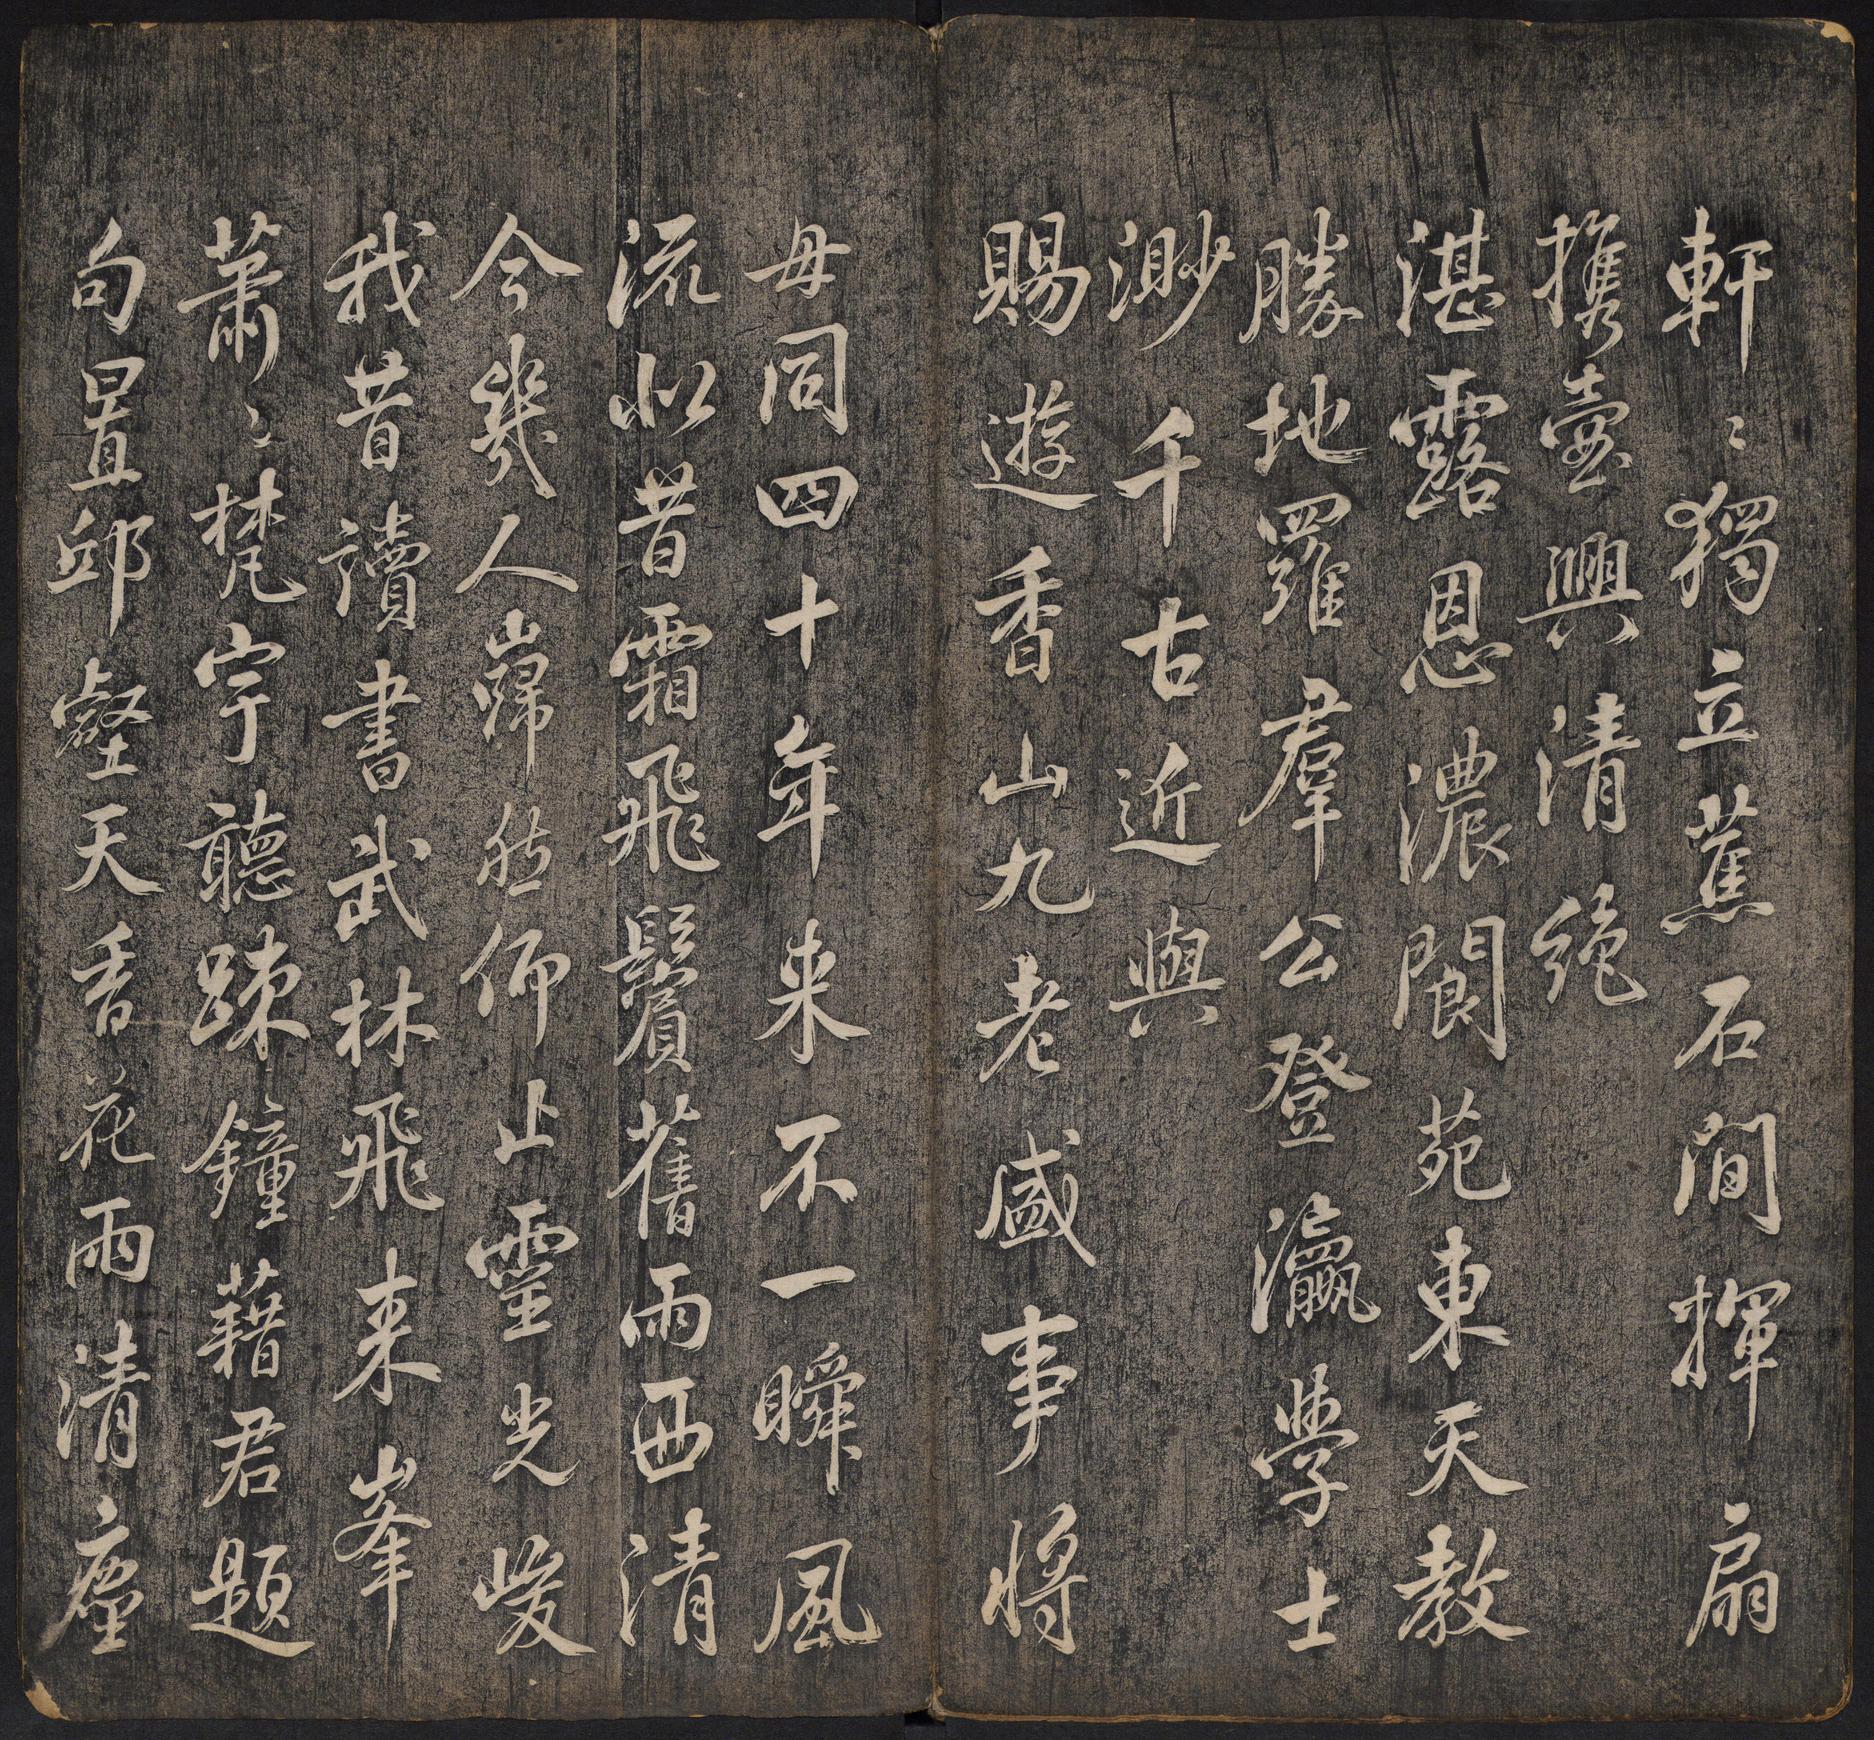 軒〻獨立蕉石間揮扇
攜壺興清絶
湛露恩濃閬苑東天教
勝地羅羣公登瀛學士
渺千古近與
賜遊香山九老盛事將
毋同四十年来不一瞬風
流似昔霜飛鬢舊雨西清
今幾人巋然仰止靈光峻
我昔讀書武林飛来峯
蕭〻梵宇聽踈鐘藉君題
句置邱壑天香花雨清塵